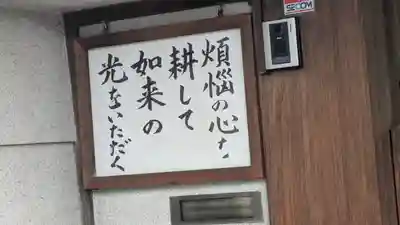 煩悩の心を
耕して
如来の
光をいただく
SECOM